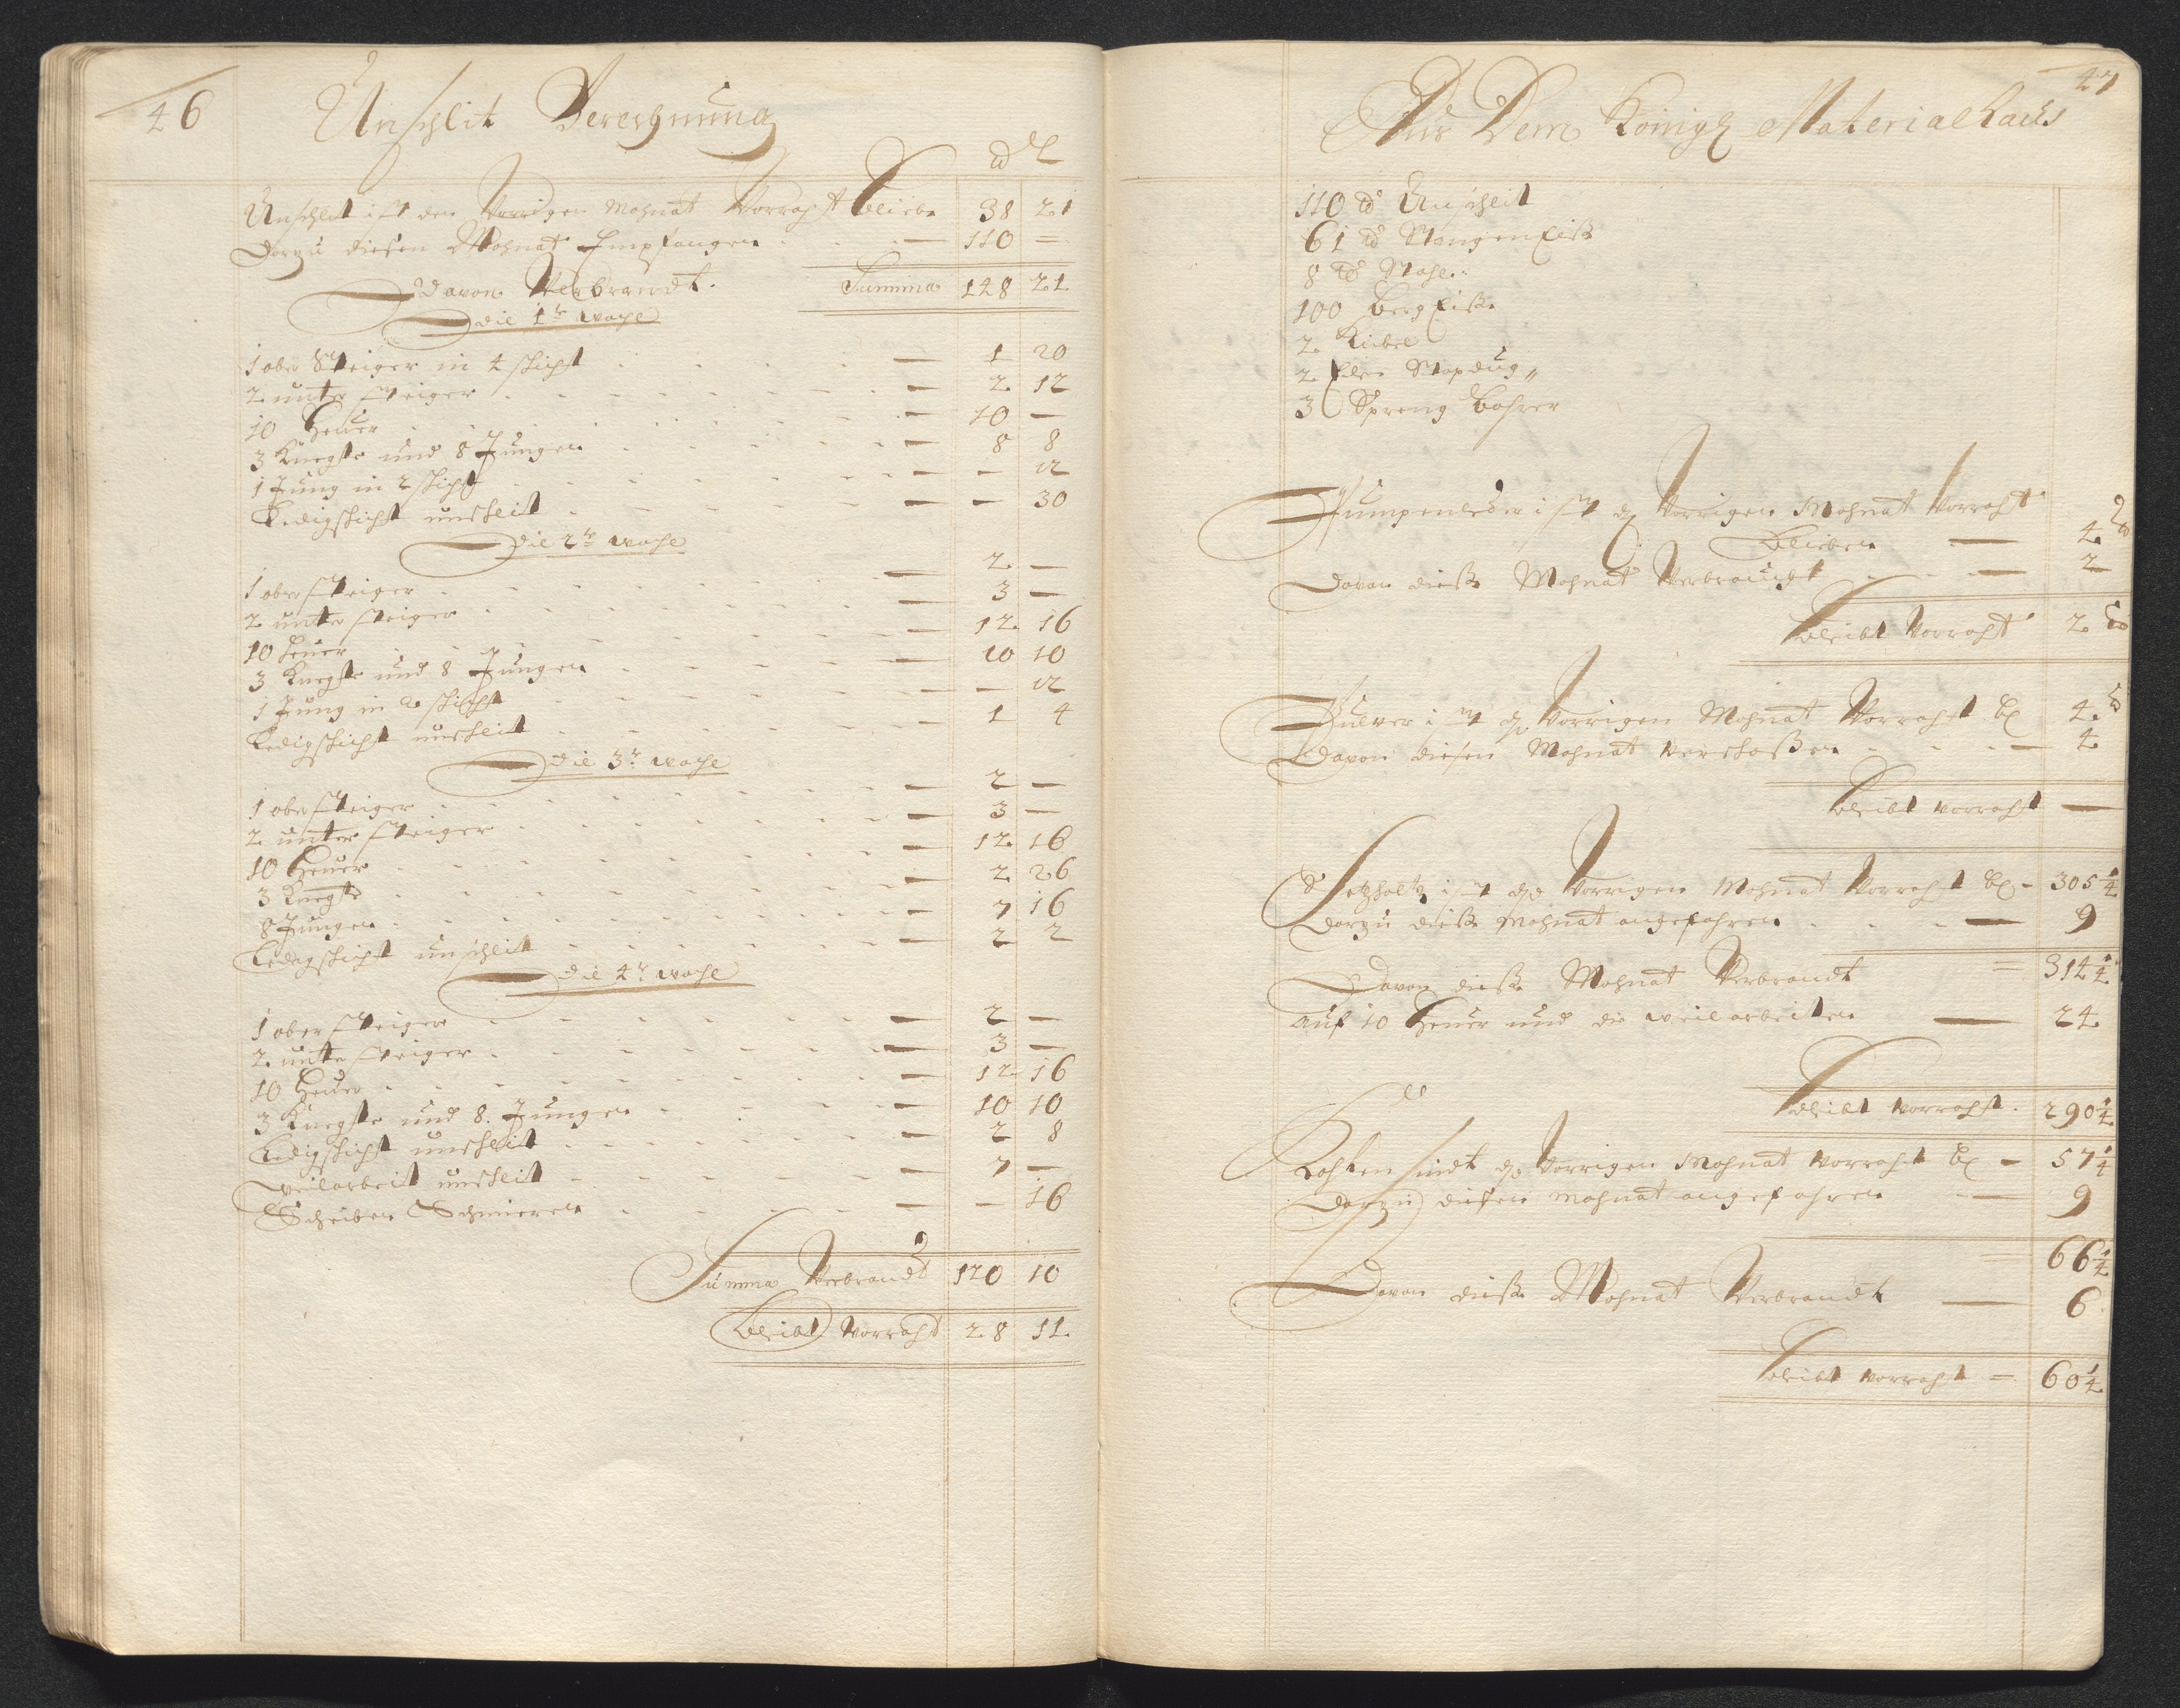 46
Unschlit Berechnung
℔ L
Unschlit ist den Vorrigen Mohnat Vorracht Bliebn 38 21
Dorzu diesen Mohnat Empfangen — 110 =
Davon Verbrandt. Summa 148 21
Die 1te woche
1 ober Steiger in 4 schicht — 1 20
2 unter steiger — 2 12
10 Heuer — 10 —
3 Knegste und 8 Jungen — 8 8
1 Jung in 2 schicht — — 12
Ledigschicht unscleit — — 30
Die 2te woche
1 ober steiger — 2 —
2 unter steiger — 3 —
10 Heuer — 12 16
3 Knegste und 8 Jungen — 10 10
1 Jung in 2 schicht — — 12
Ledigschicht unscleit — 1 4
Die 3te woche
1 ober steiger — 2 —
2 unter steiger — 3 —
10 Heuer — 12 16
3 Knegste — 2 26
8 Jungen — 7 16
Ledigschicht unschleit — 2 2
Die 4te woche
1 ober steiger — 2 —
2 unter steiger — 3 —
10 Heuer — 12 16
3 Knegste und 8 Jungen — 10 10
Ledigschicht unscleit — 2 8
weilarbeit unscleit — 7 —
Scheiben Schmieren — — 16
Summa Verbrandt 120 10
Bleibt Vorracht 28 11
47
Aus Dem Königl Material Haus
110 ℔ Unschleit
61 ℔ Stangen Eiß
8 ℔ Stahl
100 berg Eiße
2 Kübel
2 Elen
3 Spreng Bohrer
Pumpenleder ist d Vorrigen Mohnat Vorracht
Blieben — 4 ℔
Davon dieße Mohnat Verbraucht — 2
bleibt Vorracht 2 ℔
Pulver ist d Vorrigen Mohnat Vorracht bl 4 ℔
Davon diesen Mohnat verschoßen — 4
bleibt vorracht —
Setzholtz ist d Vorrigen Mohnat Vorracht bl – 305 1/4
Dorzu dieße Mohnat angefahren — 9
Davon dieße Mohnat Verbrandt = 314 1/4
auf 10 Heuer und die weilarbeiten — 24
bleibt vorracht. 290 1/4
Kohlen sindt d Vorrigen Mohnat vorracht bl – 57 1/4
Dorzu diesen Mohnat angefahren — 9
= 66 1/4
Davon dieße Mohnat Verbrandt — 6
bleibt vorracht = 60 1/4